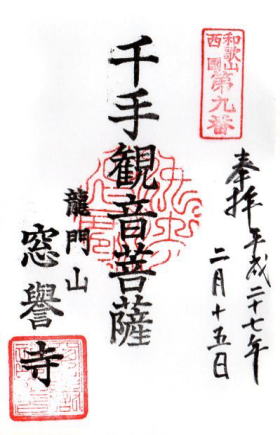 和歌山
西國
第九番
奉拝 平成二十七年
二月十五日
千手観音菩薩
龍門山
窓譽寺